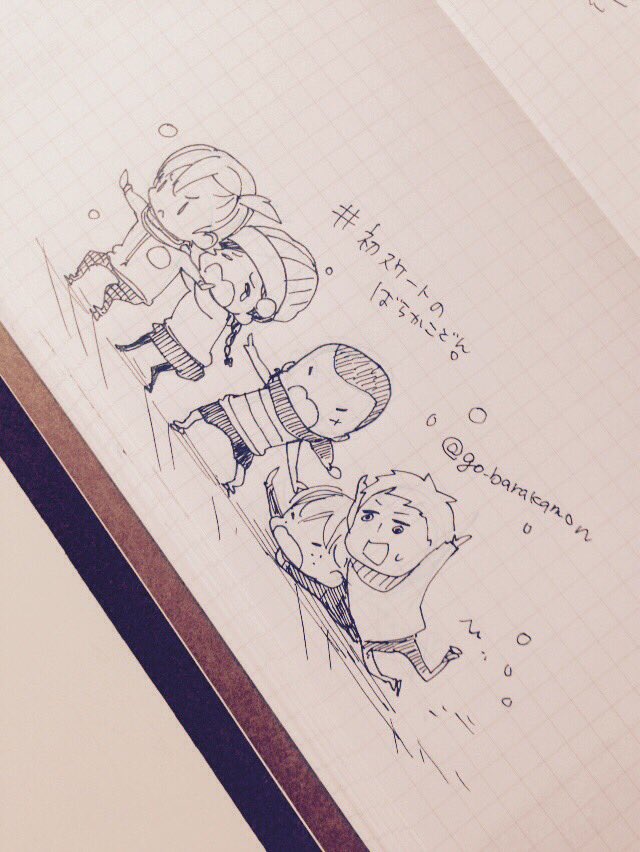 #初スケートの
ばらかこどん。
@go-barakamon